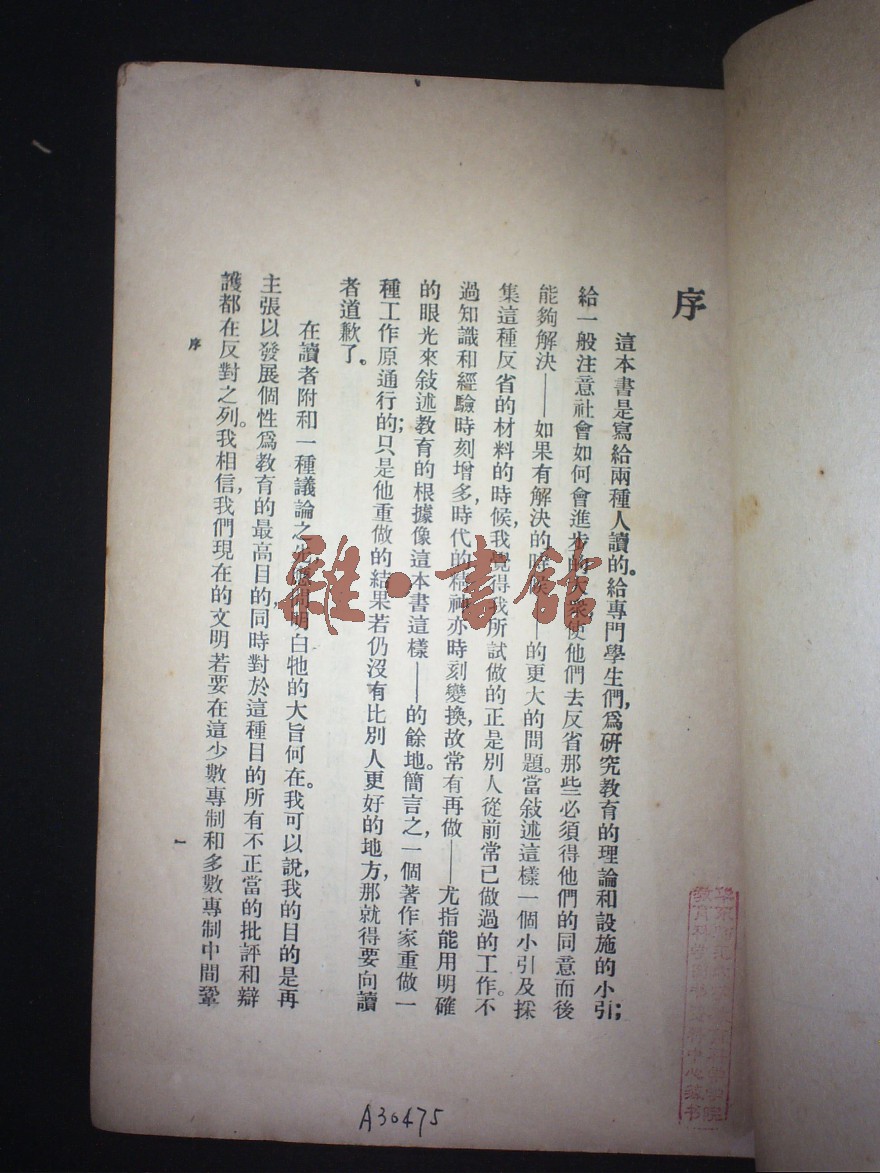 序
這本書是寫給兩種人讀的。給專門學生們，爲研究教育的理論和設施的小引；
給一般注意社會如何會進步的大衆，使他們去反省那些必須得他們的同意而後
能夠解決——如果有解決的時候——的更大的問題。當敍述這樣一個小引及採
集這種反省的材料的時候，我覺得我所試做的正是別人從前常已做過的工作。不
過知識和經驗時刻增多，時代的精神亦時刻變換，故常有再做——尤指能用明確
的眼光來敍述教育的根據像這本書這樣——的餘地。簡言之，一個著作家重做一
種工作原通行的；只是他重做的結果若仍沒有比別人更好的地方，那就得要向讀
者道歉了。
在讀者附和一種議論之先，應明白牠的大旨何在。我可以說，我的目的是再
主張以發展個性爲教育的最高目的，同時對於這種目的所有不正當的批評和辯
護都在反對之列。我相信，我們現在的文明若要在這少數專制和多數專制中間鞏
序
一
雜·書館
A30475